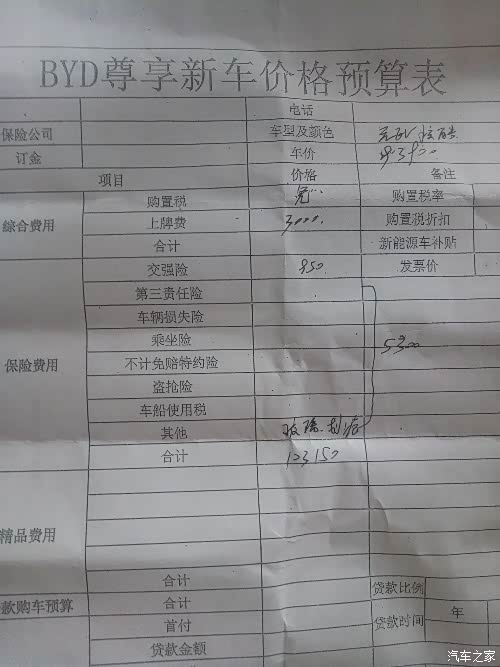 BYD尊享新车价格预算表
电话
保险公司 车型及颜色
订金 车价 93900
项目 价格 备注
综合费用 购置税 免 购置税率
上牌费 3000 购置税折扣
合计 新能源车补贴
保险费用 交强险 950 发票价
第三责任险
车辆损失险
乘坐险 5300
不计免赔特约险
盗抢险
车船使用税
其他 玻璃.划痕
合计 103150
精品费用
合计 贷款比例
款购车预算 合计 贷款时间 年
首付
贷款金额
汽车之家